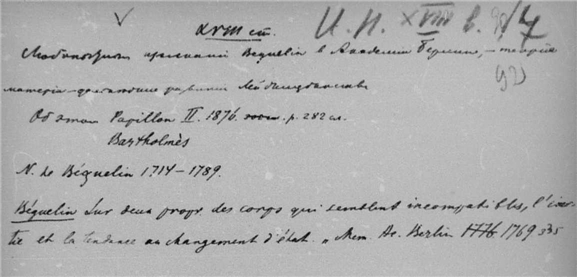 XVIII ст.
И. Н. XVIII в. 17
Любопытны признаний Béguelin в Академии Берлин, – теория
материи – дальнейшее развитие Лейбницианства
Об этом Papillon II. 1876. p. 282 сл.
Bartholmès
N. de Béguelin 1714–1789.
Béguelin Sur deux propr. des corps qui semblent incompatibles, l'iner-
tie et la tendance au changement d'état. „Mem. Ac. Berlin 1769 335
92